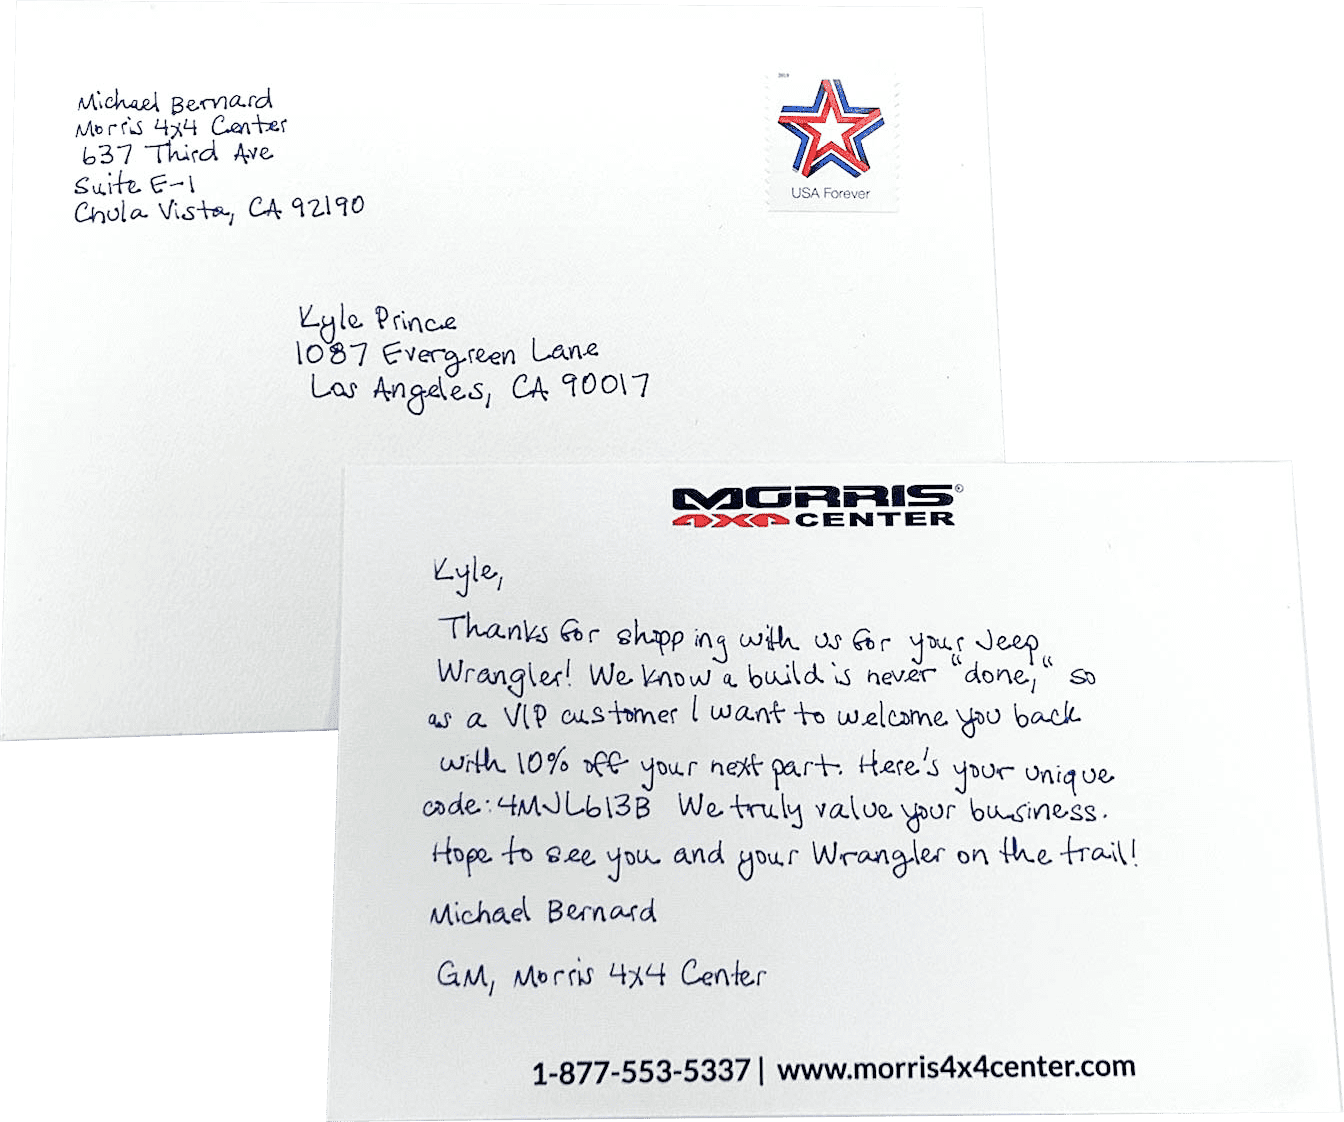 Michael Bernard
Morris 4x4 Center
637 Third Ave
Suite E-1
Chula Vista, CA 92190
2019
USA Forever
Kyle Prince
1087 Evergreen Lane
Los Angeles, CA 90017
MORRIS®
4X4 CENTER
Kyle,
Thanks for shopping with us for your Jeep
Wrangler! We know a build is never "done," so
as a VIP customer I want to welcome you back
with 10% off your next part. Here's your unique
code: 4MJL613B We truly value your business.
Hope to see you and your Wrangler on the trail!
Michael Bernard
GM, Morris 4x4 Center
1-877-553-5337 | www.morris4x4center.com